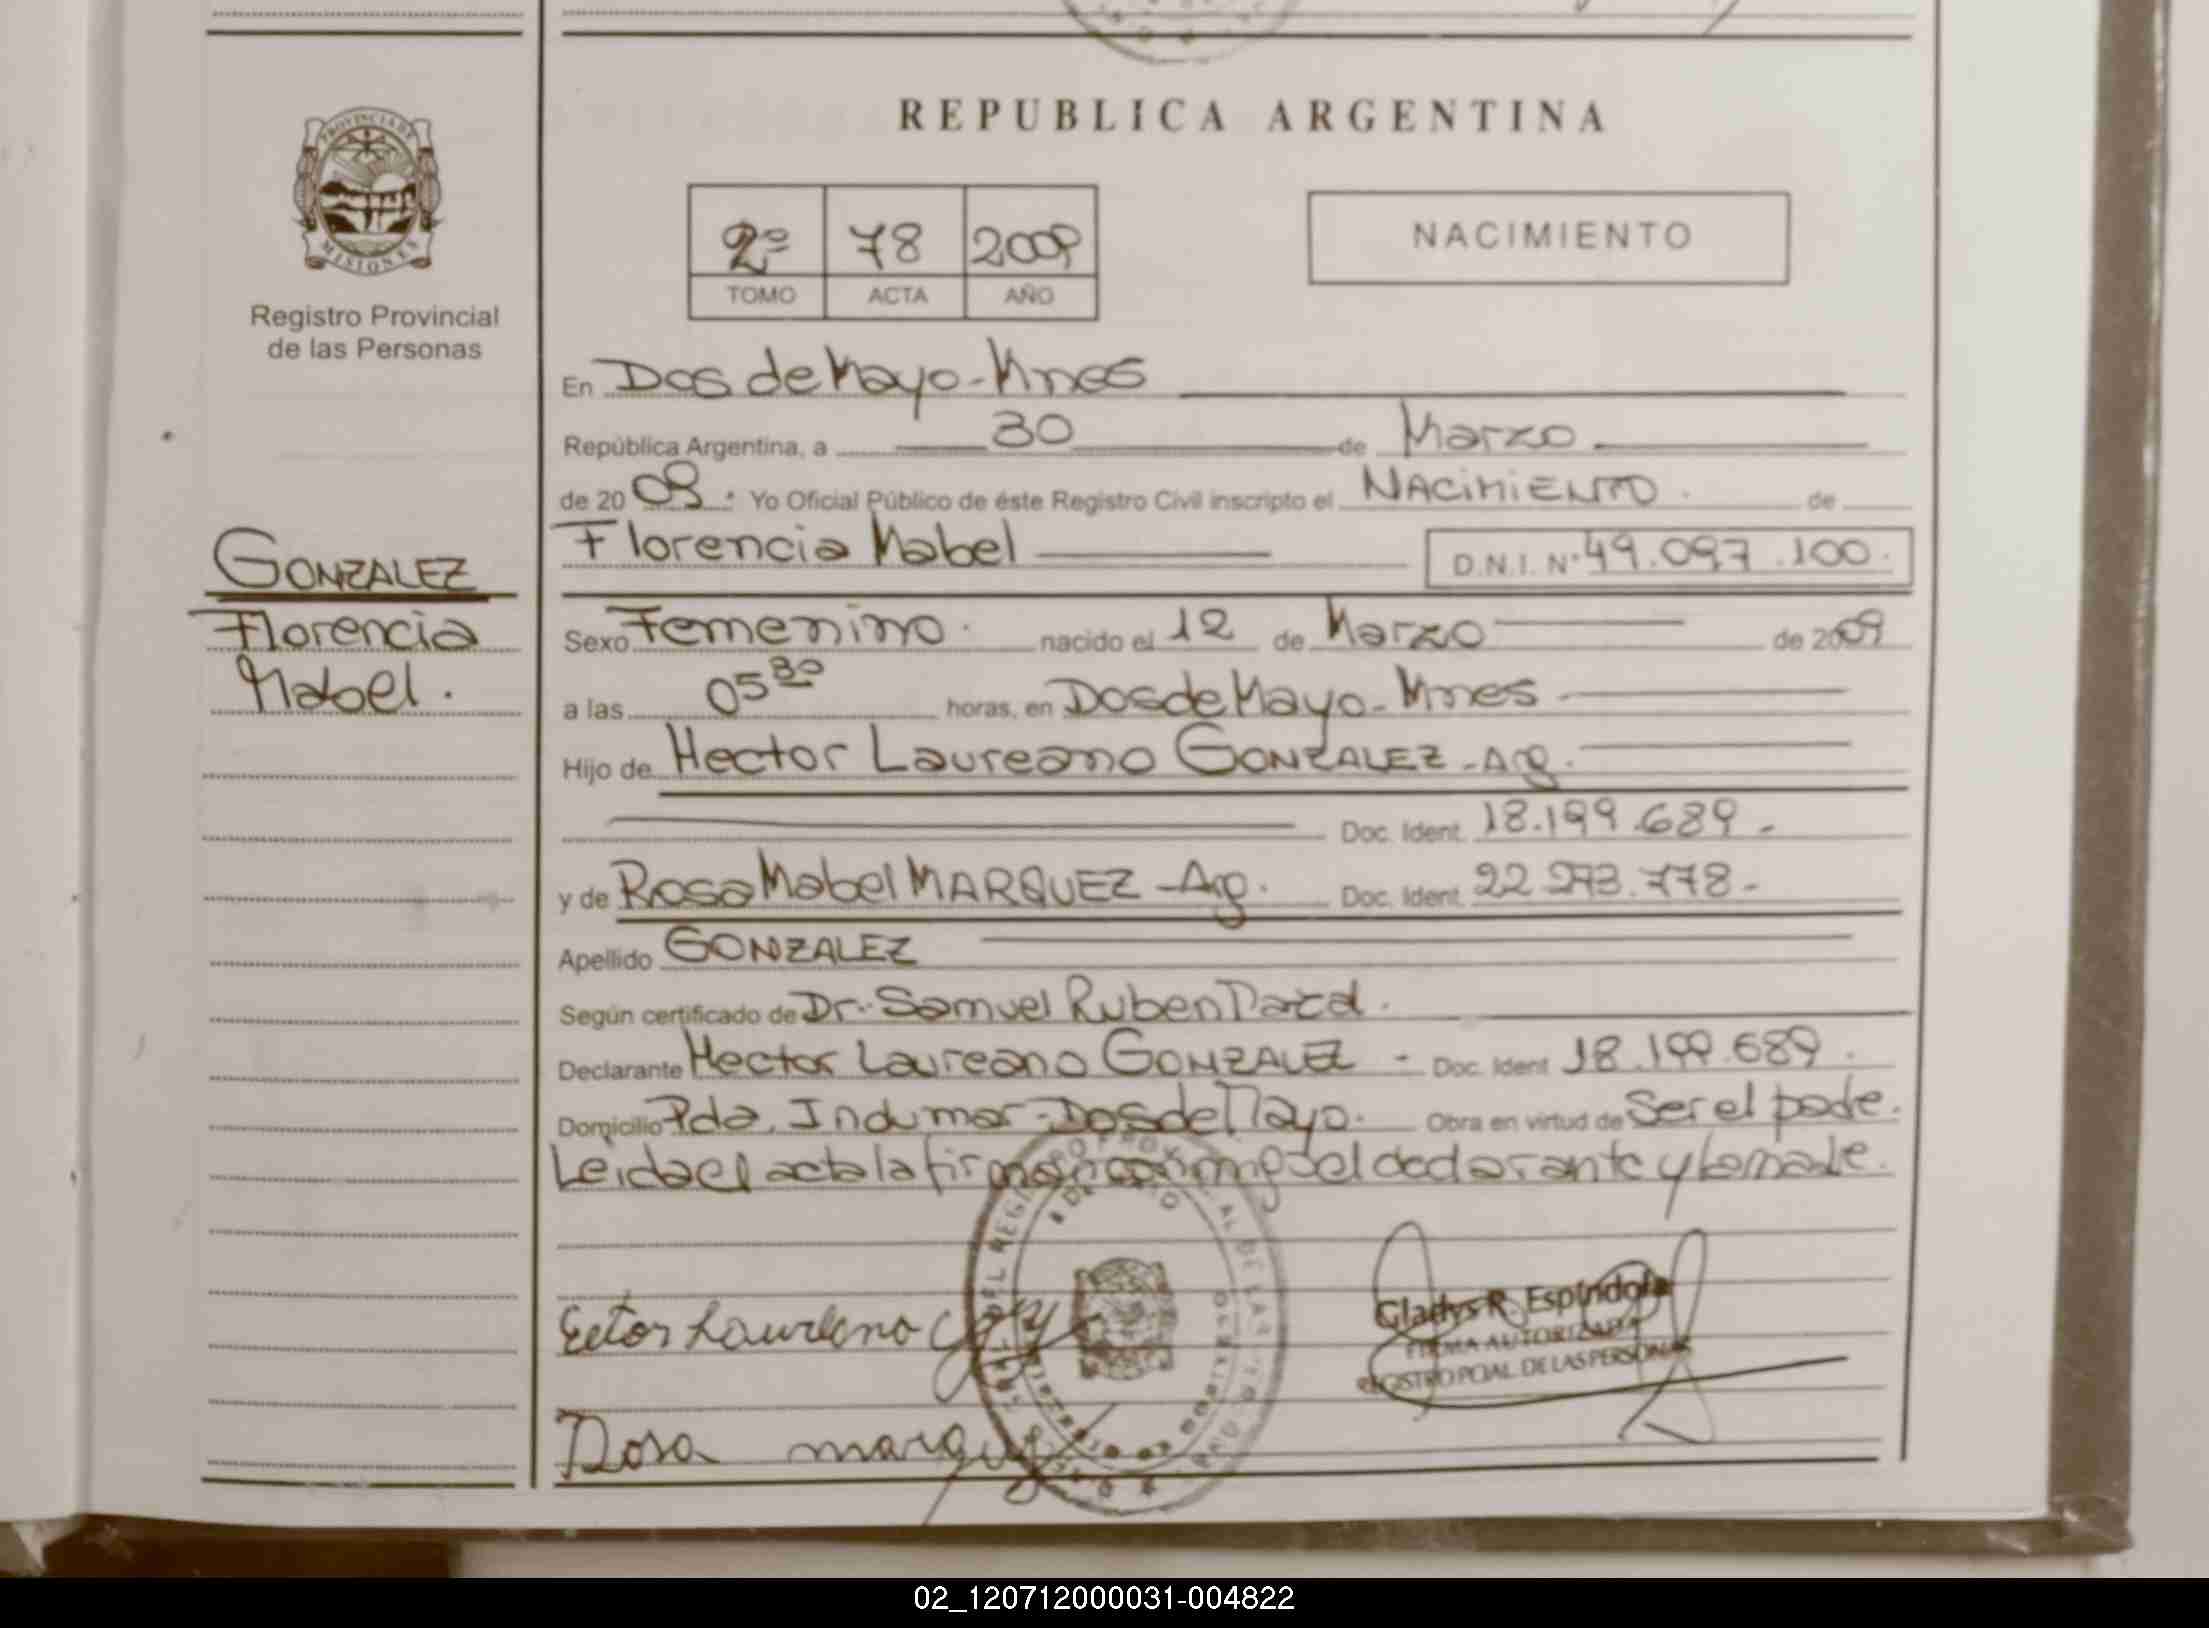 REPUBLICA ARGENTINA
PROVINCIA DE
MISIONES
Registro Provincial
de las Personas
2º 78 2009
TOMO ACTA AÑO
NACIMIENTO
En Dos de Mayo - Mnes
República Argentina, a 30 de Marzo
de 2009 : Yo Oficial Público de éste Registro Civil inscripto el NACIMIENTO . de
Florencia Mabel D.N.I. Nº 49.097.100.
GONZALEZ
Florencia
Mabel.
Sexo Femenino. nacido el 12 de Marzo de 2009
a las 05 30 horas, en Dos de Mayo - Mnes
Hijo de Hector Laureano GONZALEZ - Arg.
Doc. Ident. 18.199.689 -
y de Rosa Mabel MARQUEZ - Arg. Doc. Ident. 22 273.778 -
Apellido GONZALEZ
Según certificado de Dr. Samuel Ruben
Declarante Hector Laureano GONZALEZ - Doc. Ident 18.199.689.
Domicilio Pda. Indumar - Dos de Mayo. Obra en virtud de Ser el padre.
Leida el acta la firman conmigo el declarante y la madre.
Ector Laureano
Gladys R. Espíndola
FIRMA AUTORIZADA
REGISTRO PCIAL. DE LAS PERSONAS
Rosa marquez
02_120712000031-004822